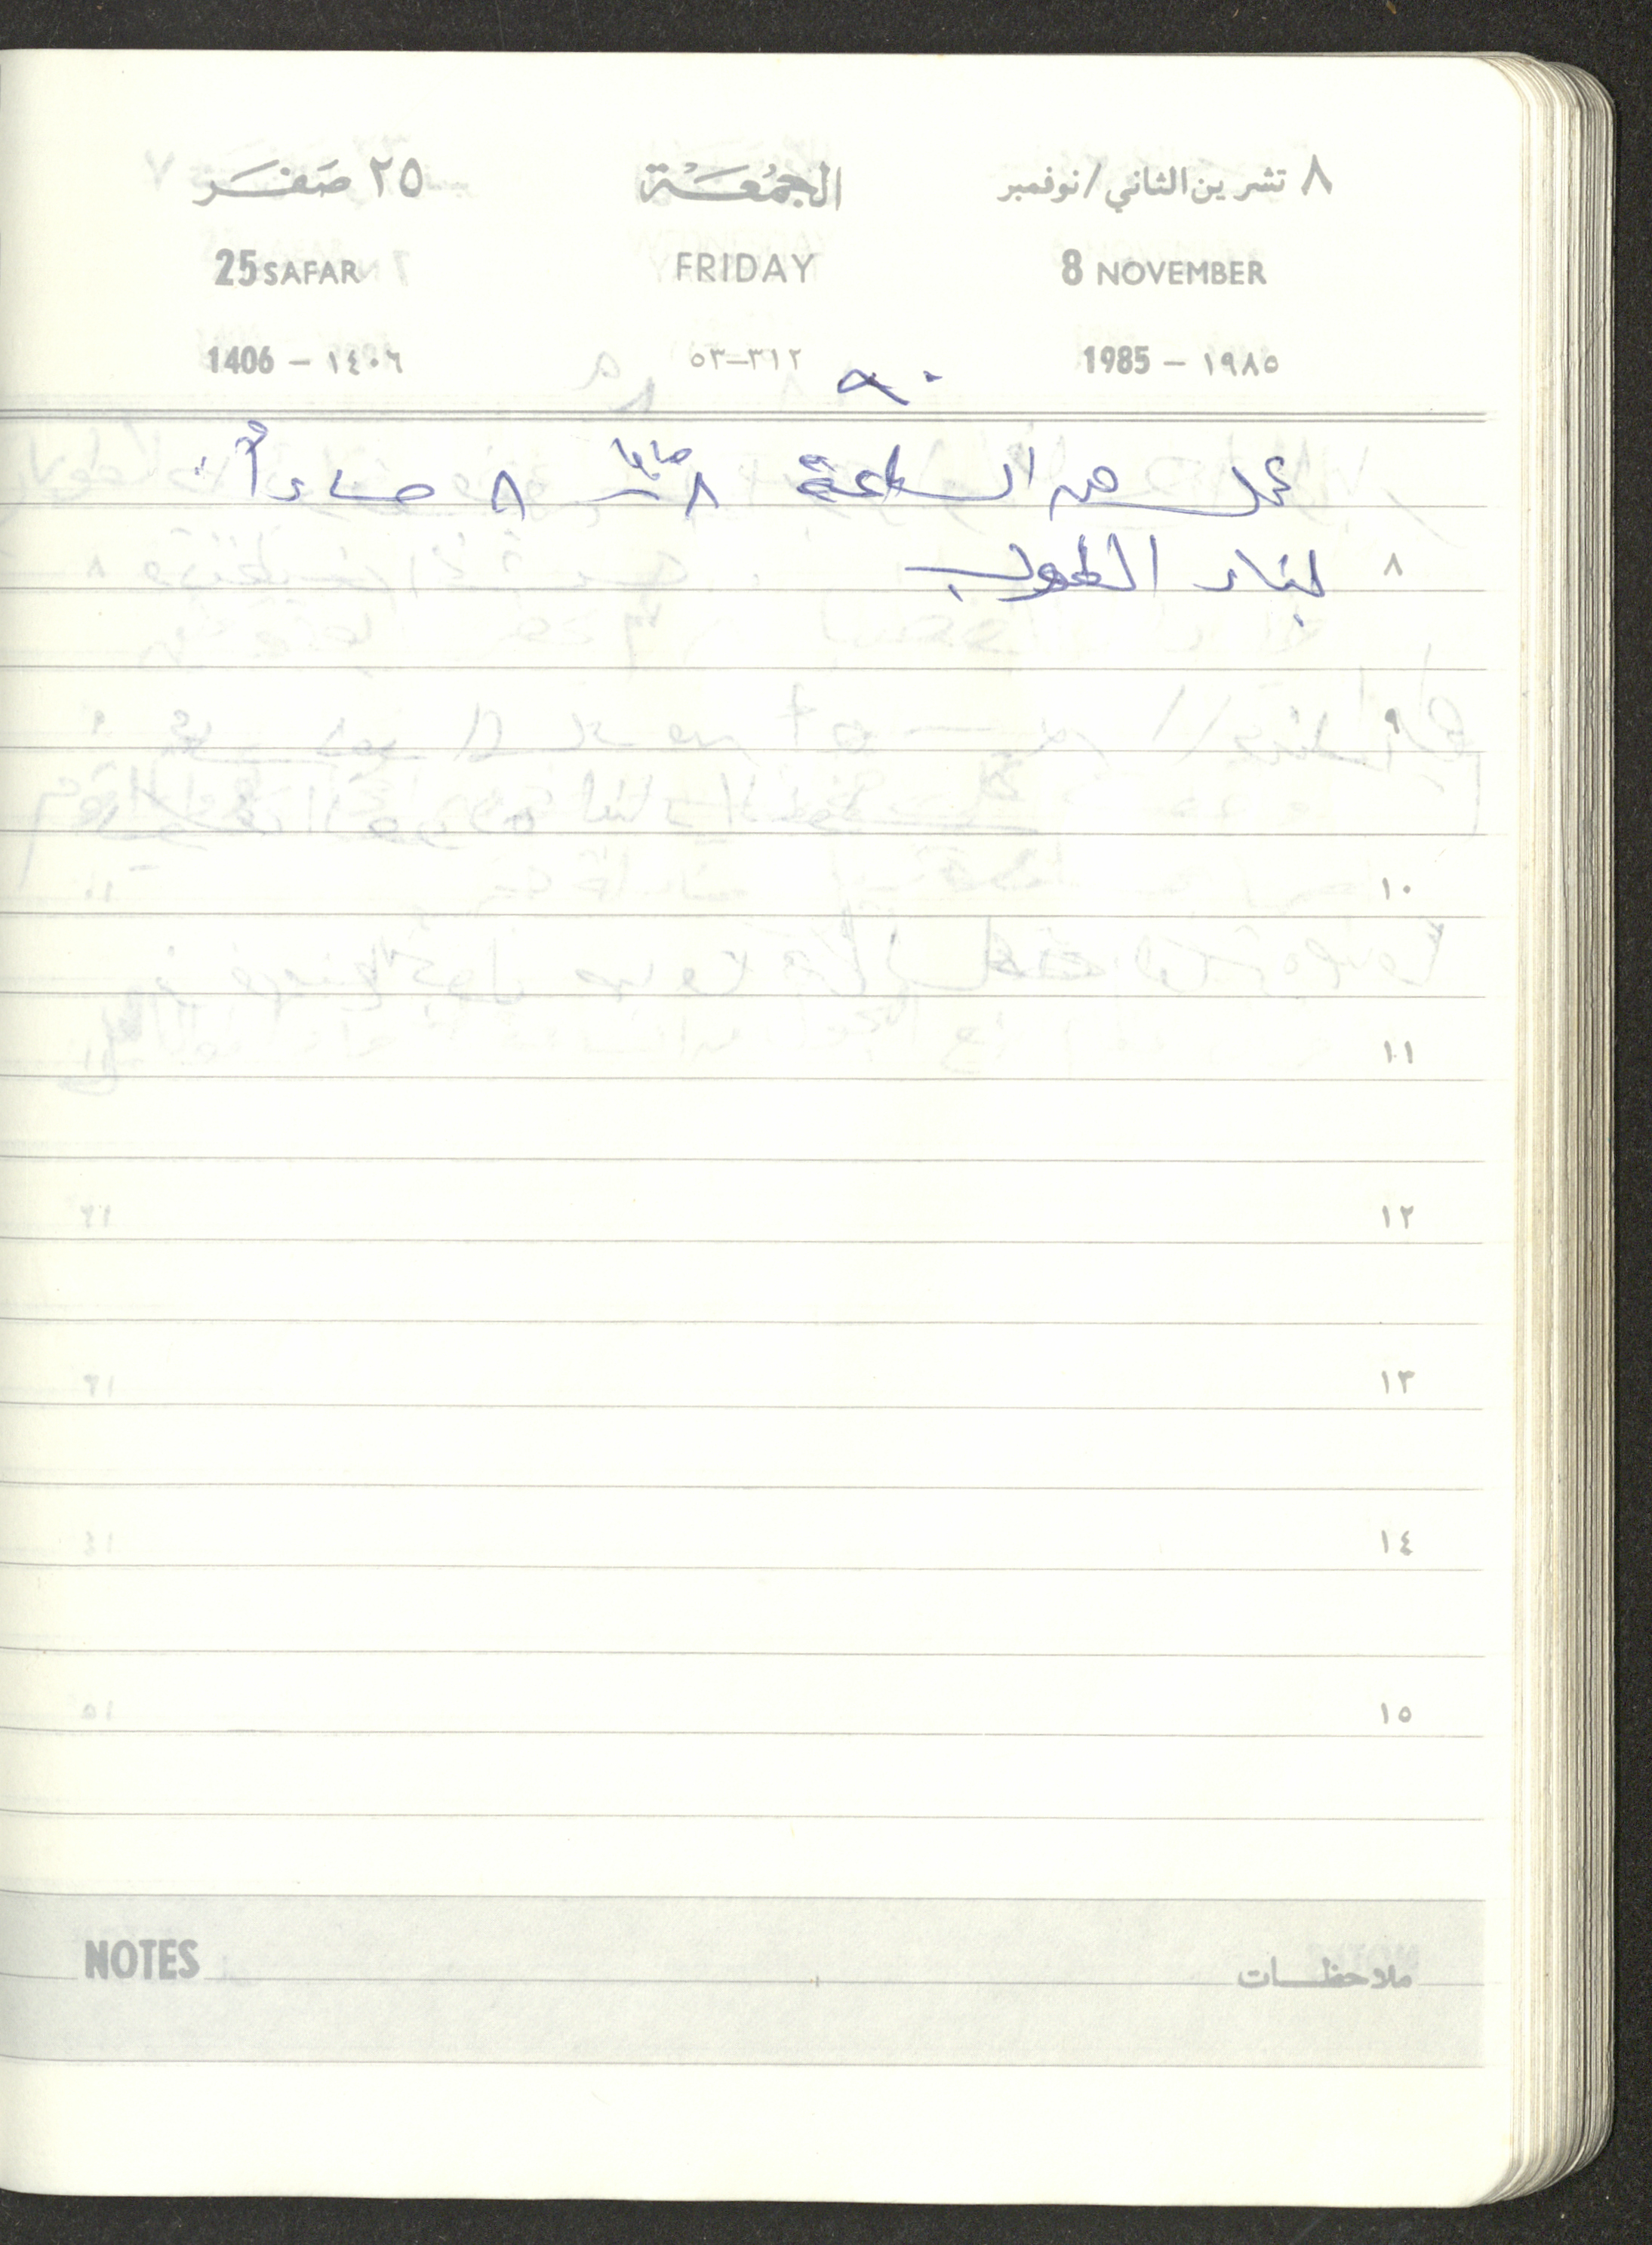 ٨ تشرين الثاني / نوفمبر الجمعة ٢٥ صفر
8 NOVEMBER FRIDAY 25 SAFAR
١٩٨٥ – 1985 ٣١٢–٥٣ ١٤٠٦ – 1406
٩٠
عمل من الساعة ٨ صباحاً ٨ مساءاً
٨ لبناء الطوب
٩
١٠
١١
١٢
١٣
١٤
١٥
ملاحظات NOTES